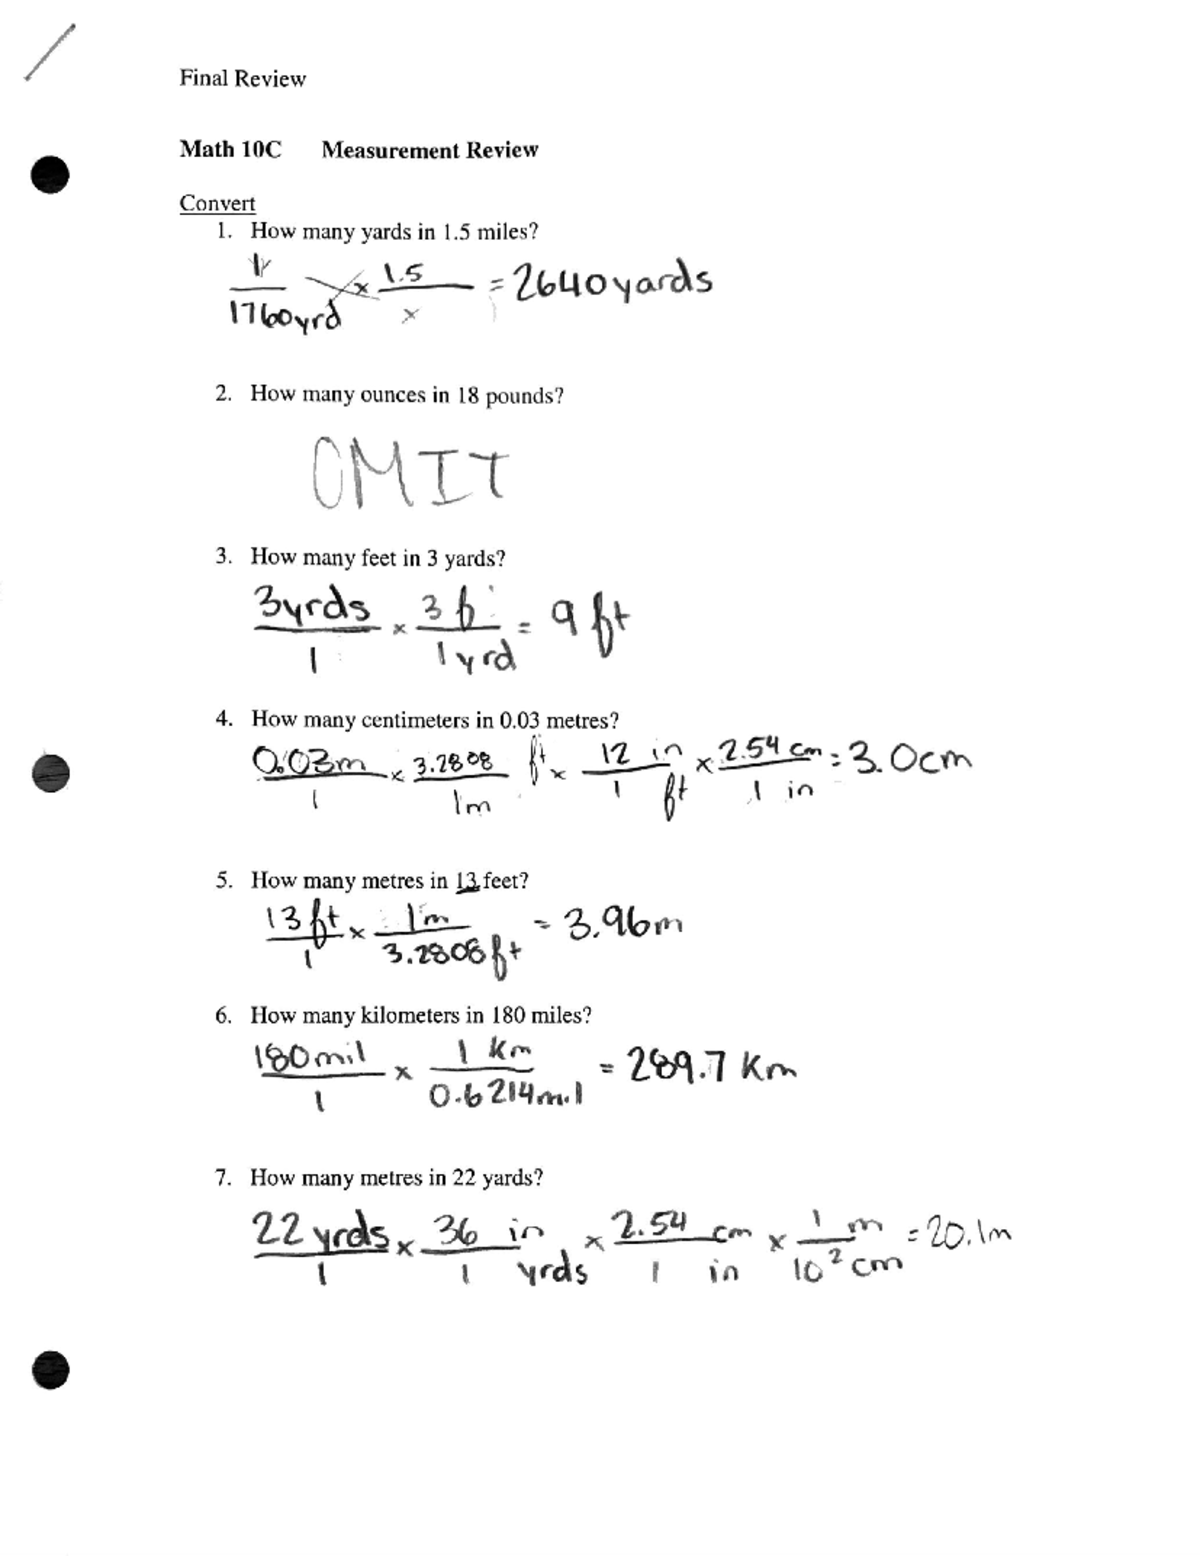 Final Review
Math 10C Measurement Review
Convert
1. How many yards in 1.5 miles?
1/1760yrd × 1.5/x = 2640 yards
2. How many ounces in 18 pounds?
OMIT
3. How many feet in 3 yards?
3yrds/1 × 3 ft/1 yrd = 9 ft
4. How many centimeters in 0.03 metres?
0.03m/1 × 3.2808 ft/1m × 12 in/1 ft × 2.54 cm/1 in = 3.0cm
5. How many metres in 13 feet?
13 ft/1 × 1m/3.2808 ft = 3.96m
6. How many kilometers in 180 miles?
180mil/1 × 1 km/0.6214mil = 289.7 km
7. How many metres in 22 yards?
22 yrds/1 × 36 in/1 yrds × 2.54 cm/1 in × 1 m/10² cm = 20.1m